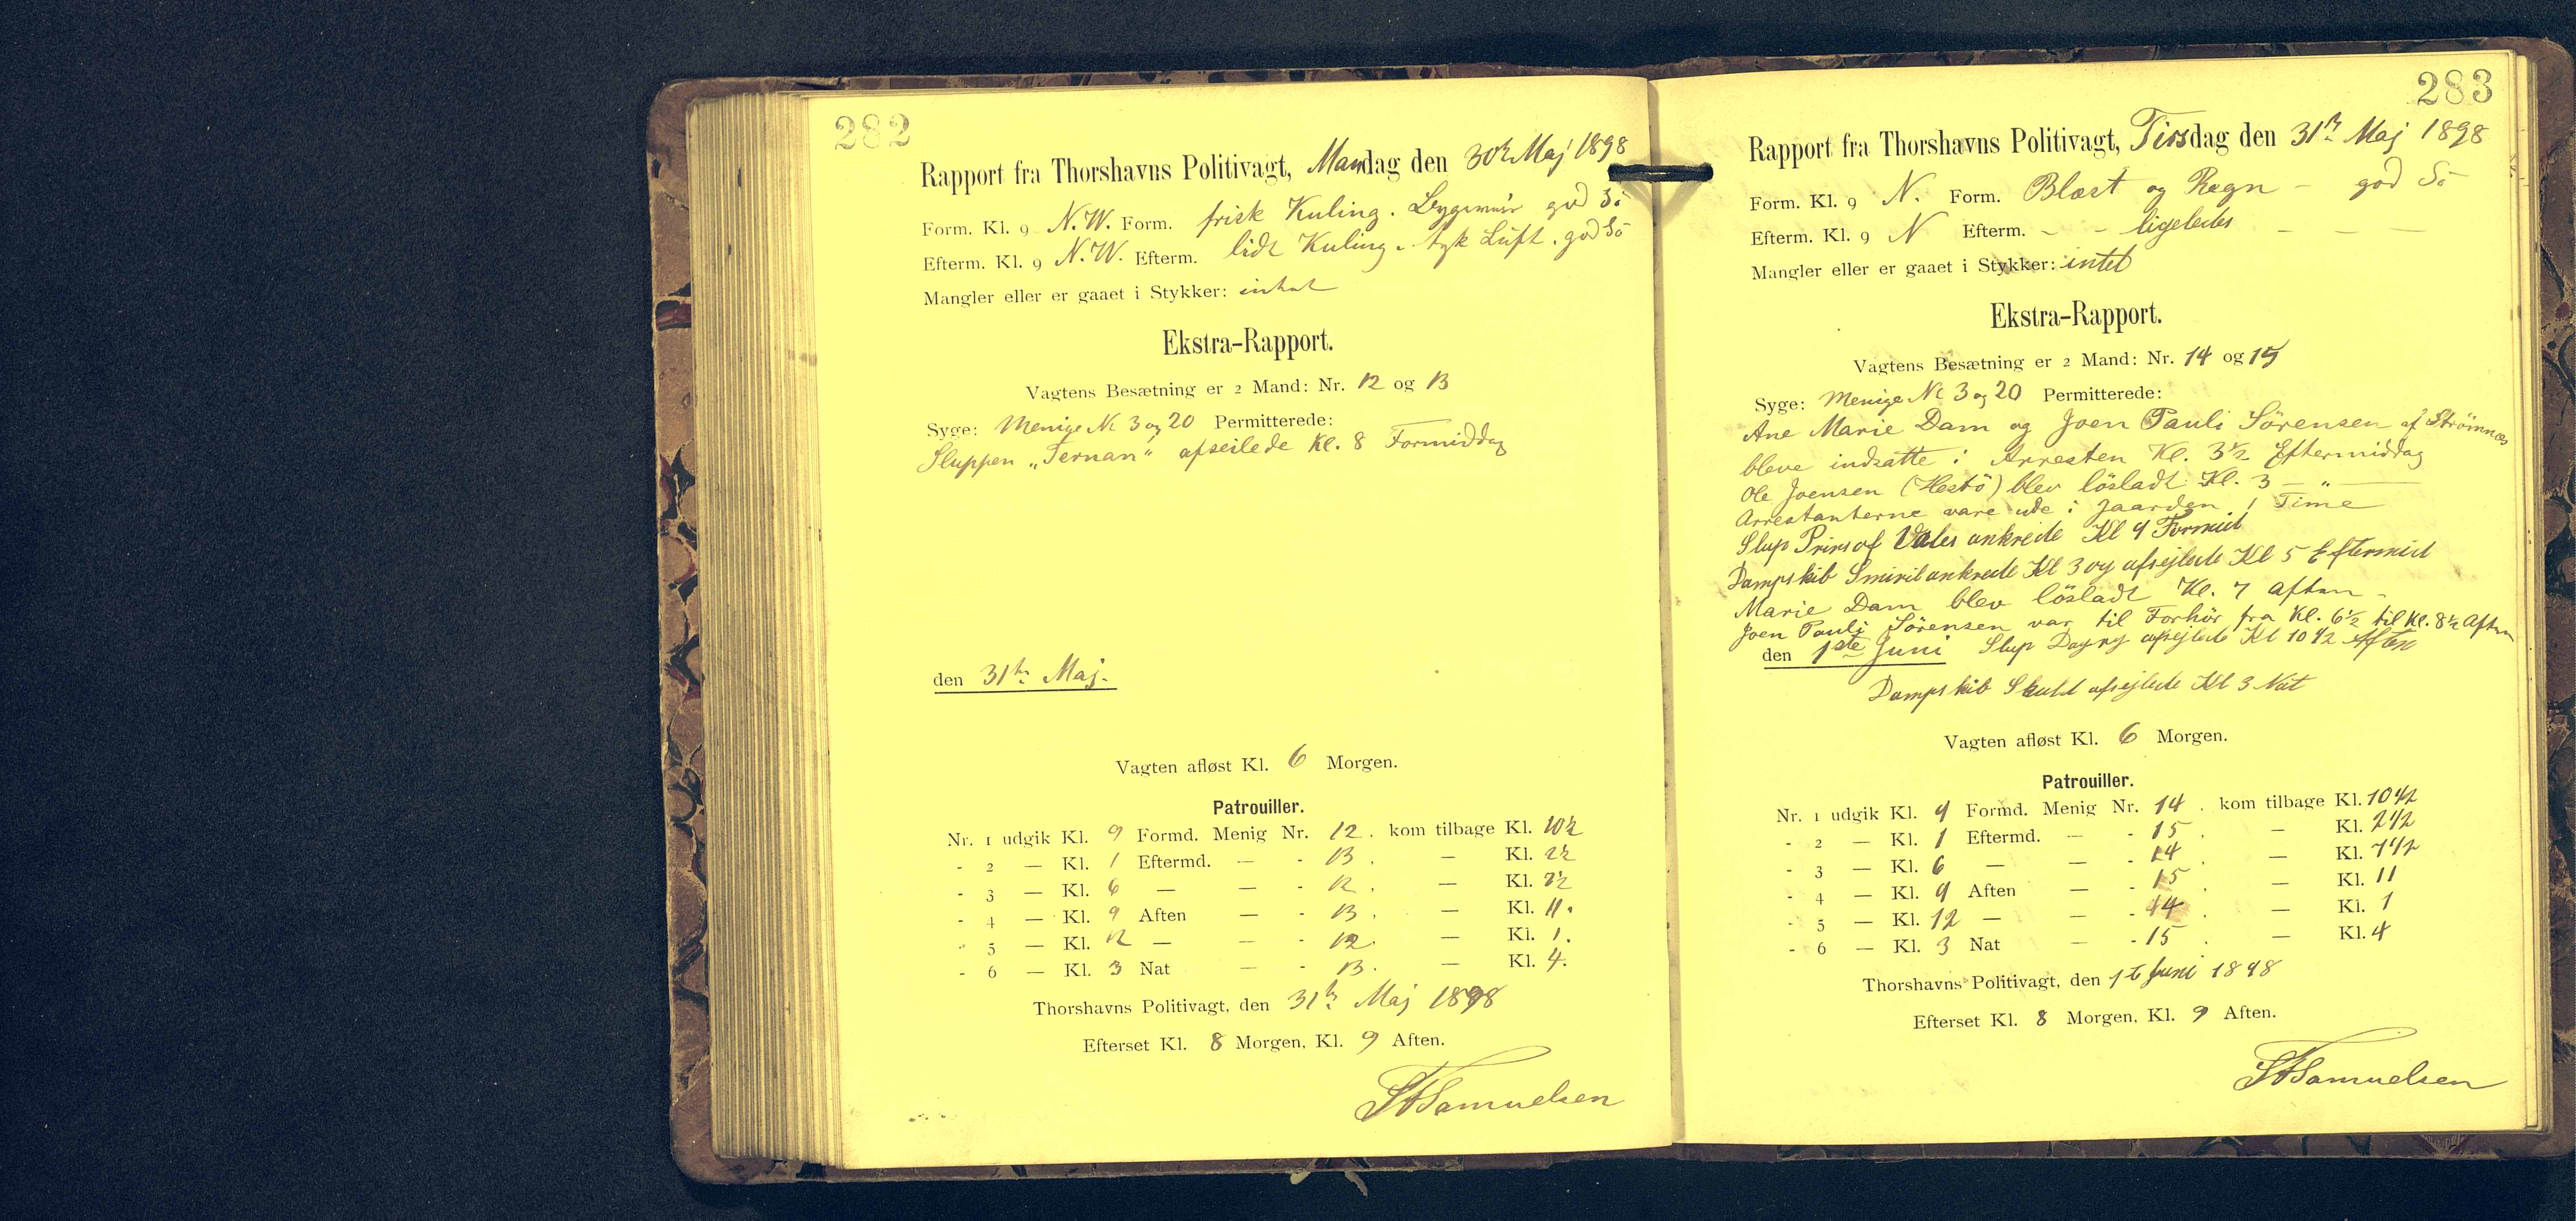 282
Rapport fra Thorshavns Politivagt, Mandag den 30te Maj 1898
Form. Kl. 9 N.W. Form. frisk Kuling. god Sö
Efterm. Kl. 9 N.W. Efterm. lidt Kuling. tyk Luft. god Sö
Mangler eller er gaaet i Stykker: intet
Ekstra-Rapport.
Vagtens Besætning er 2 Mand: Nr. 12 og 13
Syge: Menige No 3 og 20 Permitterede:
Sluppen „Ternan“ afseilede Kl. 8 Formiddag
den 31te Maj.
Vagten afløst Kl. 6 Morgen.
Patrouiller.
Nr. 1 udgik Kl. 9 Formd. Menig Nr. 12. kom tilbage Kl. 10½
- 2 — Kl. 1 Eftermd. — - 13. — Kl. 2½
- 3 — Kl. 6 — — - 12. — Kl. 7½
- 4 — Kl. 9 Aften — - 13. — Kl. 11.
- 5 — Kl. 12 — — - 12. — Kl. 1.
- 6 — Kl. 3 Nat — - 13. — Kl. 4.
Thorshavns Politivagt, den 31te Maj 1898
Efterset Kl. 8 Morgen, Kl. 9 Aften.
Samuelsen
283
Rapport fra Thorshavns Politivagt, Tirsdag den 31te Maj 1898
Form. Kl. 9 N. Form. Blæst og Regn – god Sö
Efterm. Kl. 9 N Efterm. – – ligeledes – – –
Mangler eller er gaaet i Stykker: intet
Ekstra-Rapport.
Vagtens Besætning er 2 Mand: Nr. 14 og 15
Syge: Menige No 3 og 20 Permitterede:
Ane Marie Dam og Joen Pauli Sörensen af Strömnæs
bleve indsatte i Arresten Kl. 3½ Eftermiddag
Ole Joensen (Hestö) blev lösladt Kl. 3 — „ —
Arrestanterne vare ude i Gaarden 1 Time
Slup Prins of Vales ankrede Kl 9 Formid
Dampskib Smiril ankrede Kl 3 og afsejlede Kl 5 Eftermid
Marie Dam blev lösladt Kl. 7 Aften –
Joen Pauli Sörensen var til Forhör fra Kl. 6½ til Kl. 8½ Aften
den 1ste Juni Slup afsejlede Kl 10½ Aften
Dampskib Skuld afsejlede Kl 3 Nat
Vagten afløst Kl. 6 Morgen.
Patrouiller.
Nr. 1 udgik Kl. 9 Formd. Menig Nr. 14. kom tilbage Kl. 10½
- 2 — Kl. 1 Eftermd. — - 15. — Kl. 2½
- 3 — Kl. 6 — — - 14. — Kl. 7½
- 4 — Kl. 9 Aften — - 15. — Kl. 11
- 5 — Kl. 12 — — - 14. — Kl. 1
- 6 — Kl. 3 Nat — - 15. — Kl. 4
Thorshavns Politivagt, den 1te Juni 1898
Efterset Kl. 8 Morgen, Kl. 9 Aften.
Samuelsen